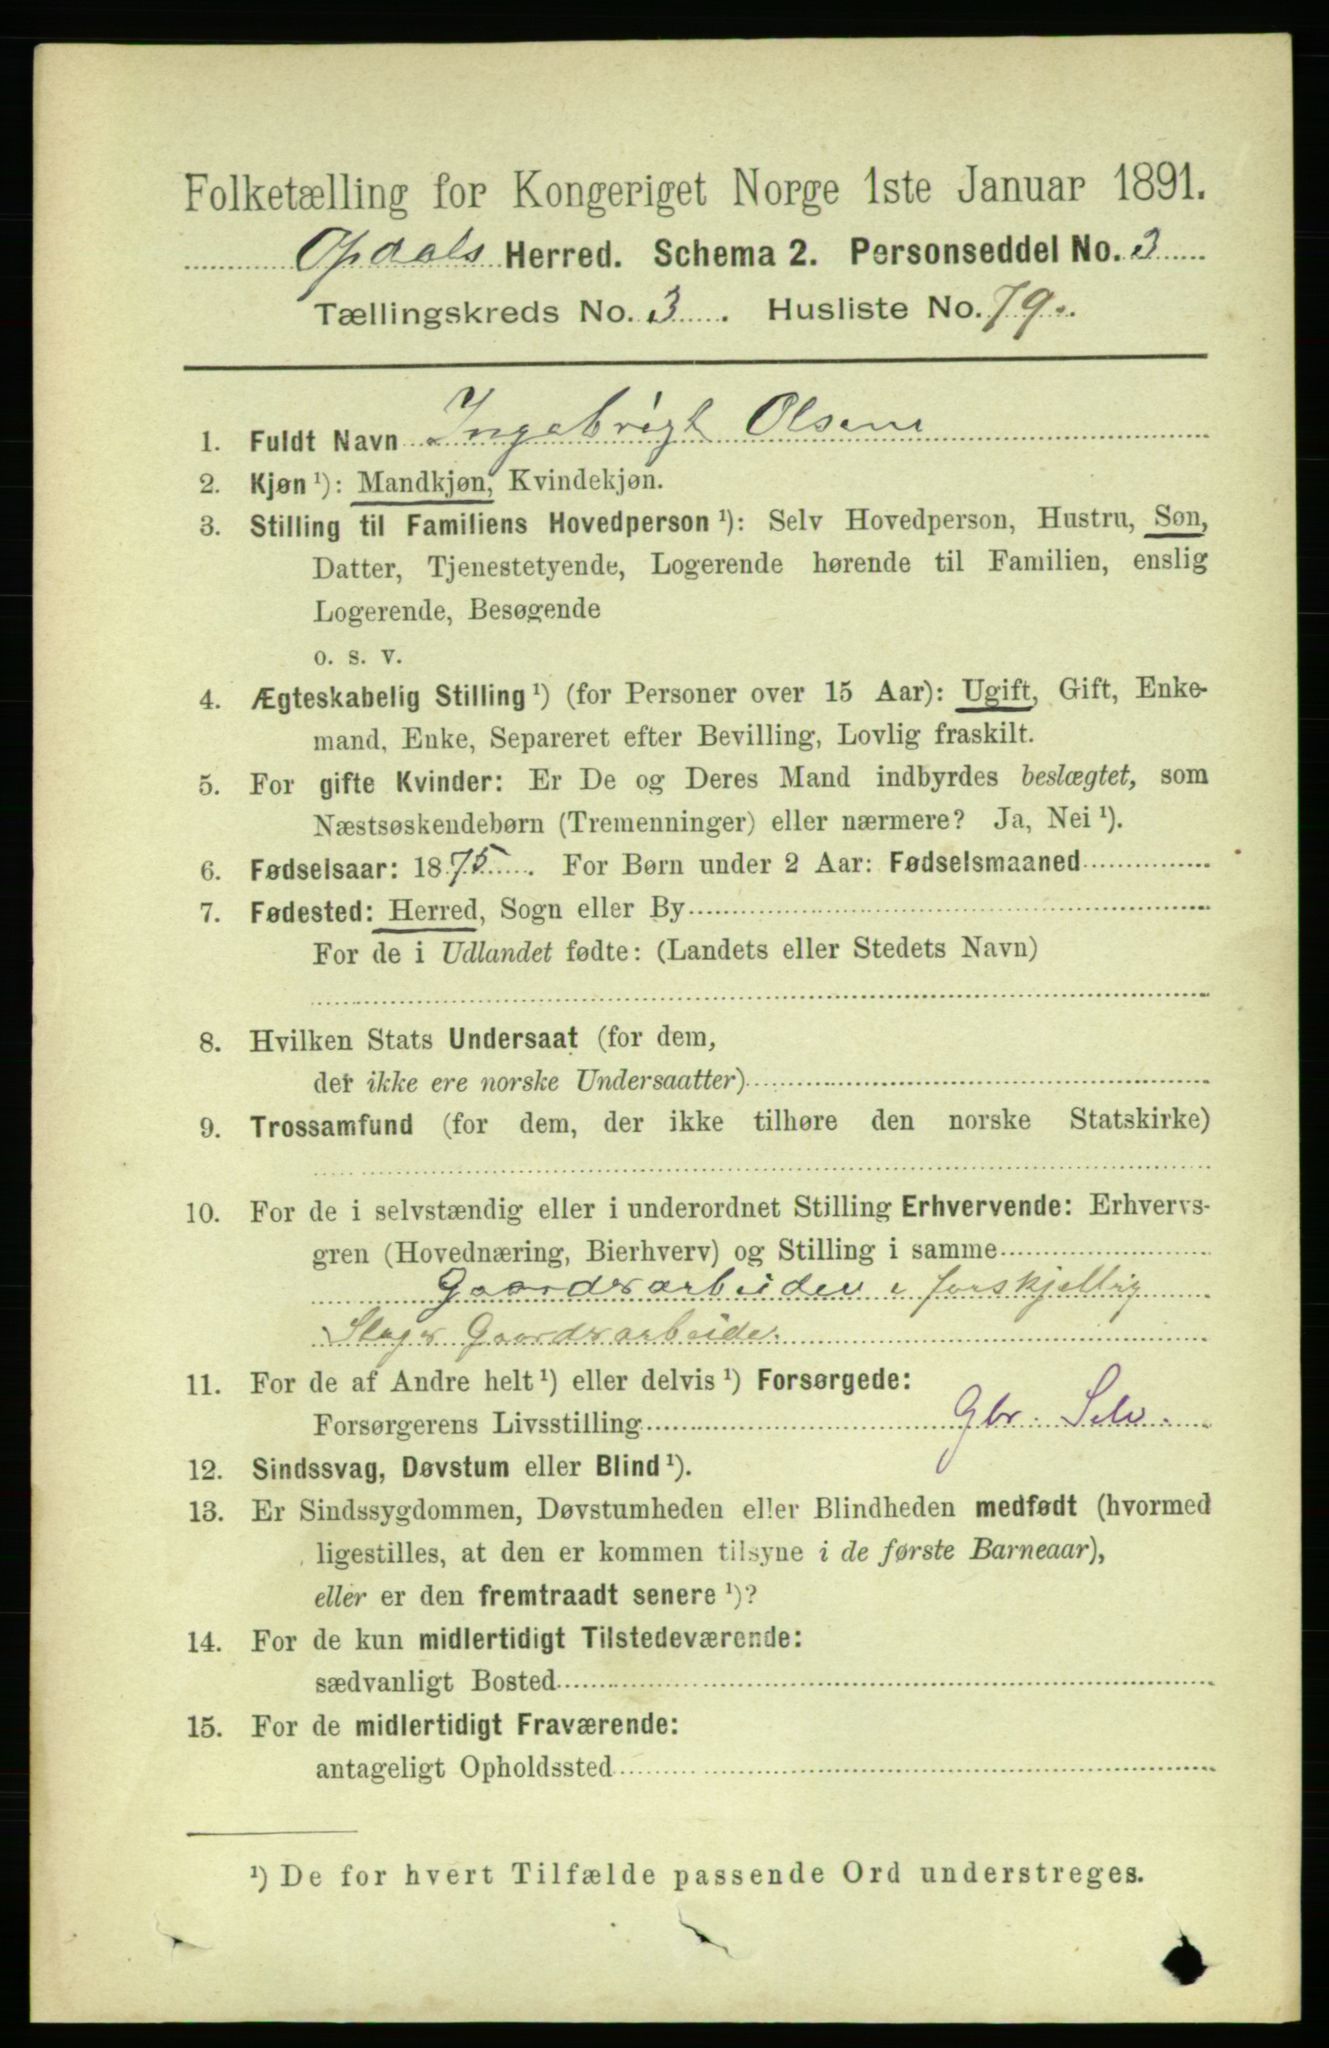 Folketælling for Kongeriget Norge 1ste Januar 1891.
Opdals Herred. Schema 2. Personseddel No. 3
Tællingskreds No. 3. Husliste No. 79.
1. Fuldt Navn Ingebrigt Olsen
2. Kjøn ¹): Mandkjøn, Kvindekjøn.
3. Stilling til Familiens Hovedperson ¹): Selv Hovedperson, Hustru, Søn,
Datter, Tjenestetyende, Logerende hørende til Familien, enslig
Logerende, Besøgende
o. s. v.
4. Ægteskabelig Stilling ¹) (for Personer over 15 Aar): Ugift, Gift, Enke-
mand, Enke, Separeret efter Bevilling, Lovlig fraskilt.
5. For gifte Kvinder: Er De og Deres Mand indbyrdes beslægtet, som
Næstsøskendebørn (Tremenninger) eller nærmere? Ja, Nei ¹).
6. Fødselsaar: 1875. For Børn under 2 Aar: Fødselsmaaned
7. Fødested: Herred, Sogn eller By
For de i Udlandet fødte: (Landets eller Stedets Navn)
8. Hvilken Stats Undersaat (for dem,
der ikke ere norske Undersaatter)
9. Trossamfund (for dem, der ikke tilhøre den norske Statskirke)
10. For de i selvstændig eller i underordnet Stilling Erhvervende: Erhvervs-
gren (Hovednæring, Bierhverv) og Stilling i samme
Gaardsarbeider i forskjellig
Slags Gaardsarbeide.
11. For de af Andre helt ¹) eller delvis ¹) Forsørgede:
Forsørgerens Livsstilling Gbr. Selv.
12. Sindssvag, Døvstum eller Blind ¹).
13. Er Sindssygdommen, Døvstumheden eller Blindheden medfødt (hvormed
ligestilles, at den er kommen tilsyne i de første Barneaar),
eller er den fremtraadt senere ¹)?
14. For de kun midlertidigt Tilstedeværende:
sædvanligt Bosted
15. For de midlertidigt Fraværende:
antageligt Opholdssted
¹) De for hvert Tilfælde passende Ord understreges.